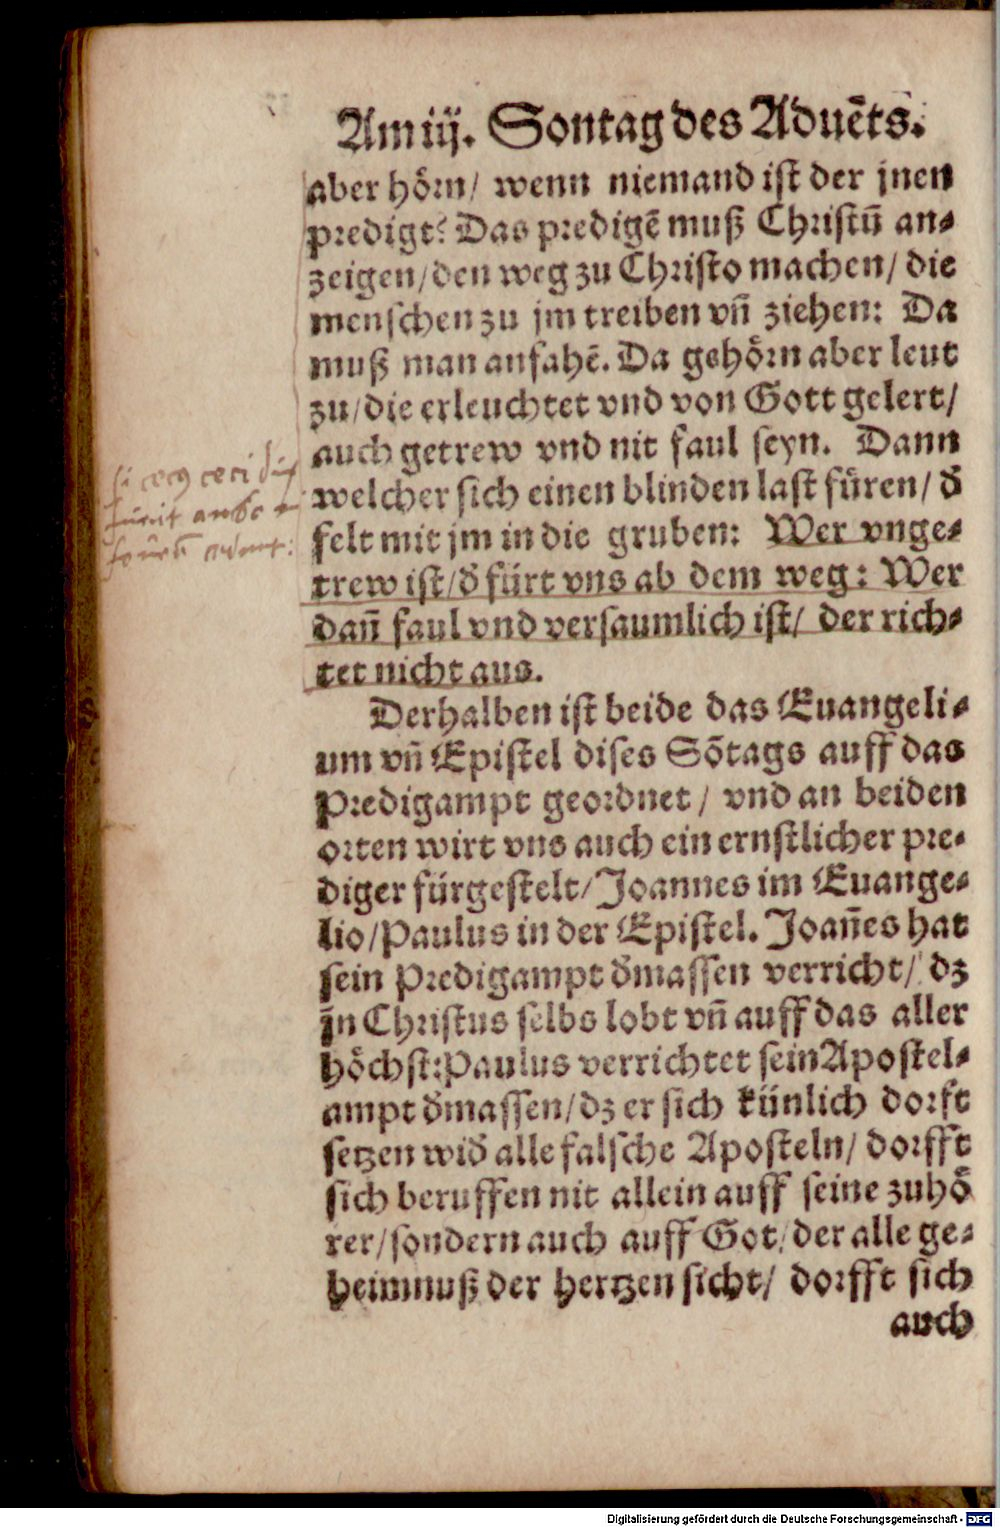 Am iij. Sontag des Aduẽts.
aber hörn/ wenn niemand ist der jnen
predigt? Das predigẽ muß Christũ an-
zeigen/ den weg zu Christo machen/ die
menschen zu jm treiben vñ ziehen: Da
muß man anfahẽ. Da gehörn aber leut
zu/ die erleuchtet vnd von Gott gelert/
auch getrew vnd nit faul seyn. Dann
welcher sich einen blinden last füren/ d̕
felt mit jm in die gruben: Wer vnge-
trew ist/ d̕ fürt vns ab dem weg: Wer
dañ faul vnd versaumlich ist/ der rich-
tet nicht aus.
Derhalben ist beide das Euangeli-
um vñ Epistel dises Sõtags auff das
Predigampt geordnet/ vnd an beiden
orten wirt vns auch ein ernstlicher pre-
diger fürgestelt/ Joannes im Euange-
lio/ Paulus in der Epistel. Joañes hat
sein Predigampt d̕massen verricht/ dz
jn Christus selbs lobt vñ auff das aller
höchst: Paulus verrichtet sein Apostel-
ampt d̕massen/ dz er sich künlich dorft
setzen wid̕ alle falsche Aposteln/ dorfft
sich beruffen nit allein auff seine zuhö
rer/ sondern auch auff Got/ der alle ge-
heimnuß der hertzen sicht/ dorfft sich
auch
si cecus ceci
Digitalisierung gefördert durch die Deutsche Forschungsgemeinschaft - DFG